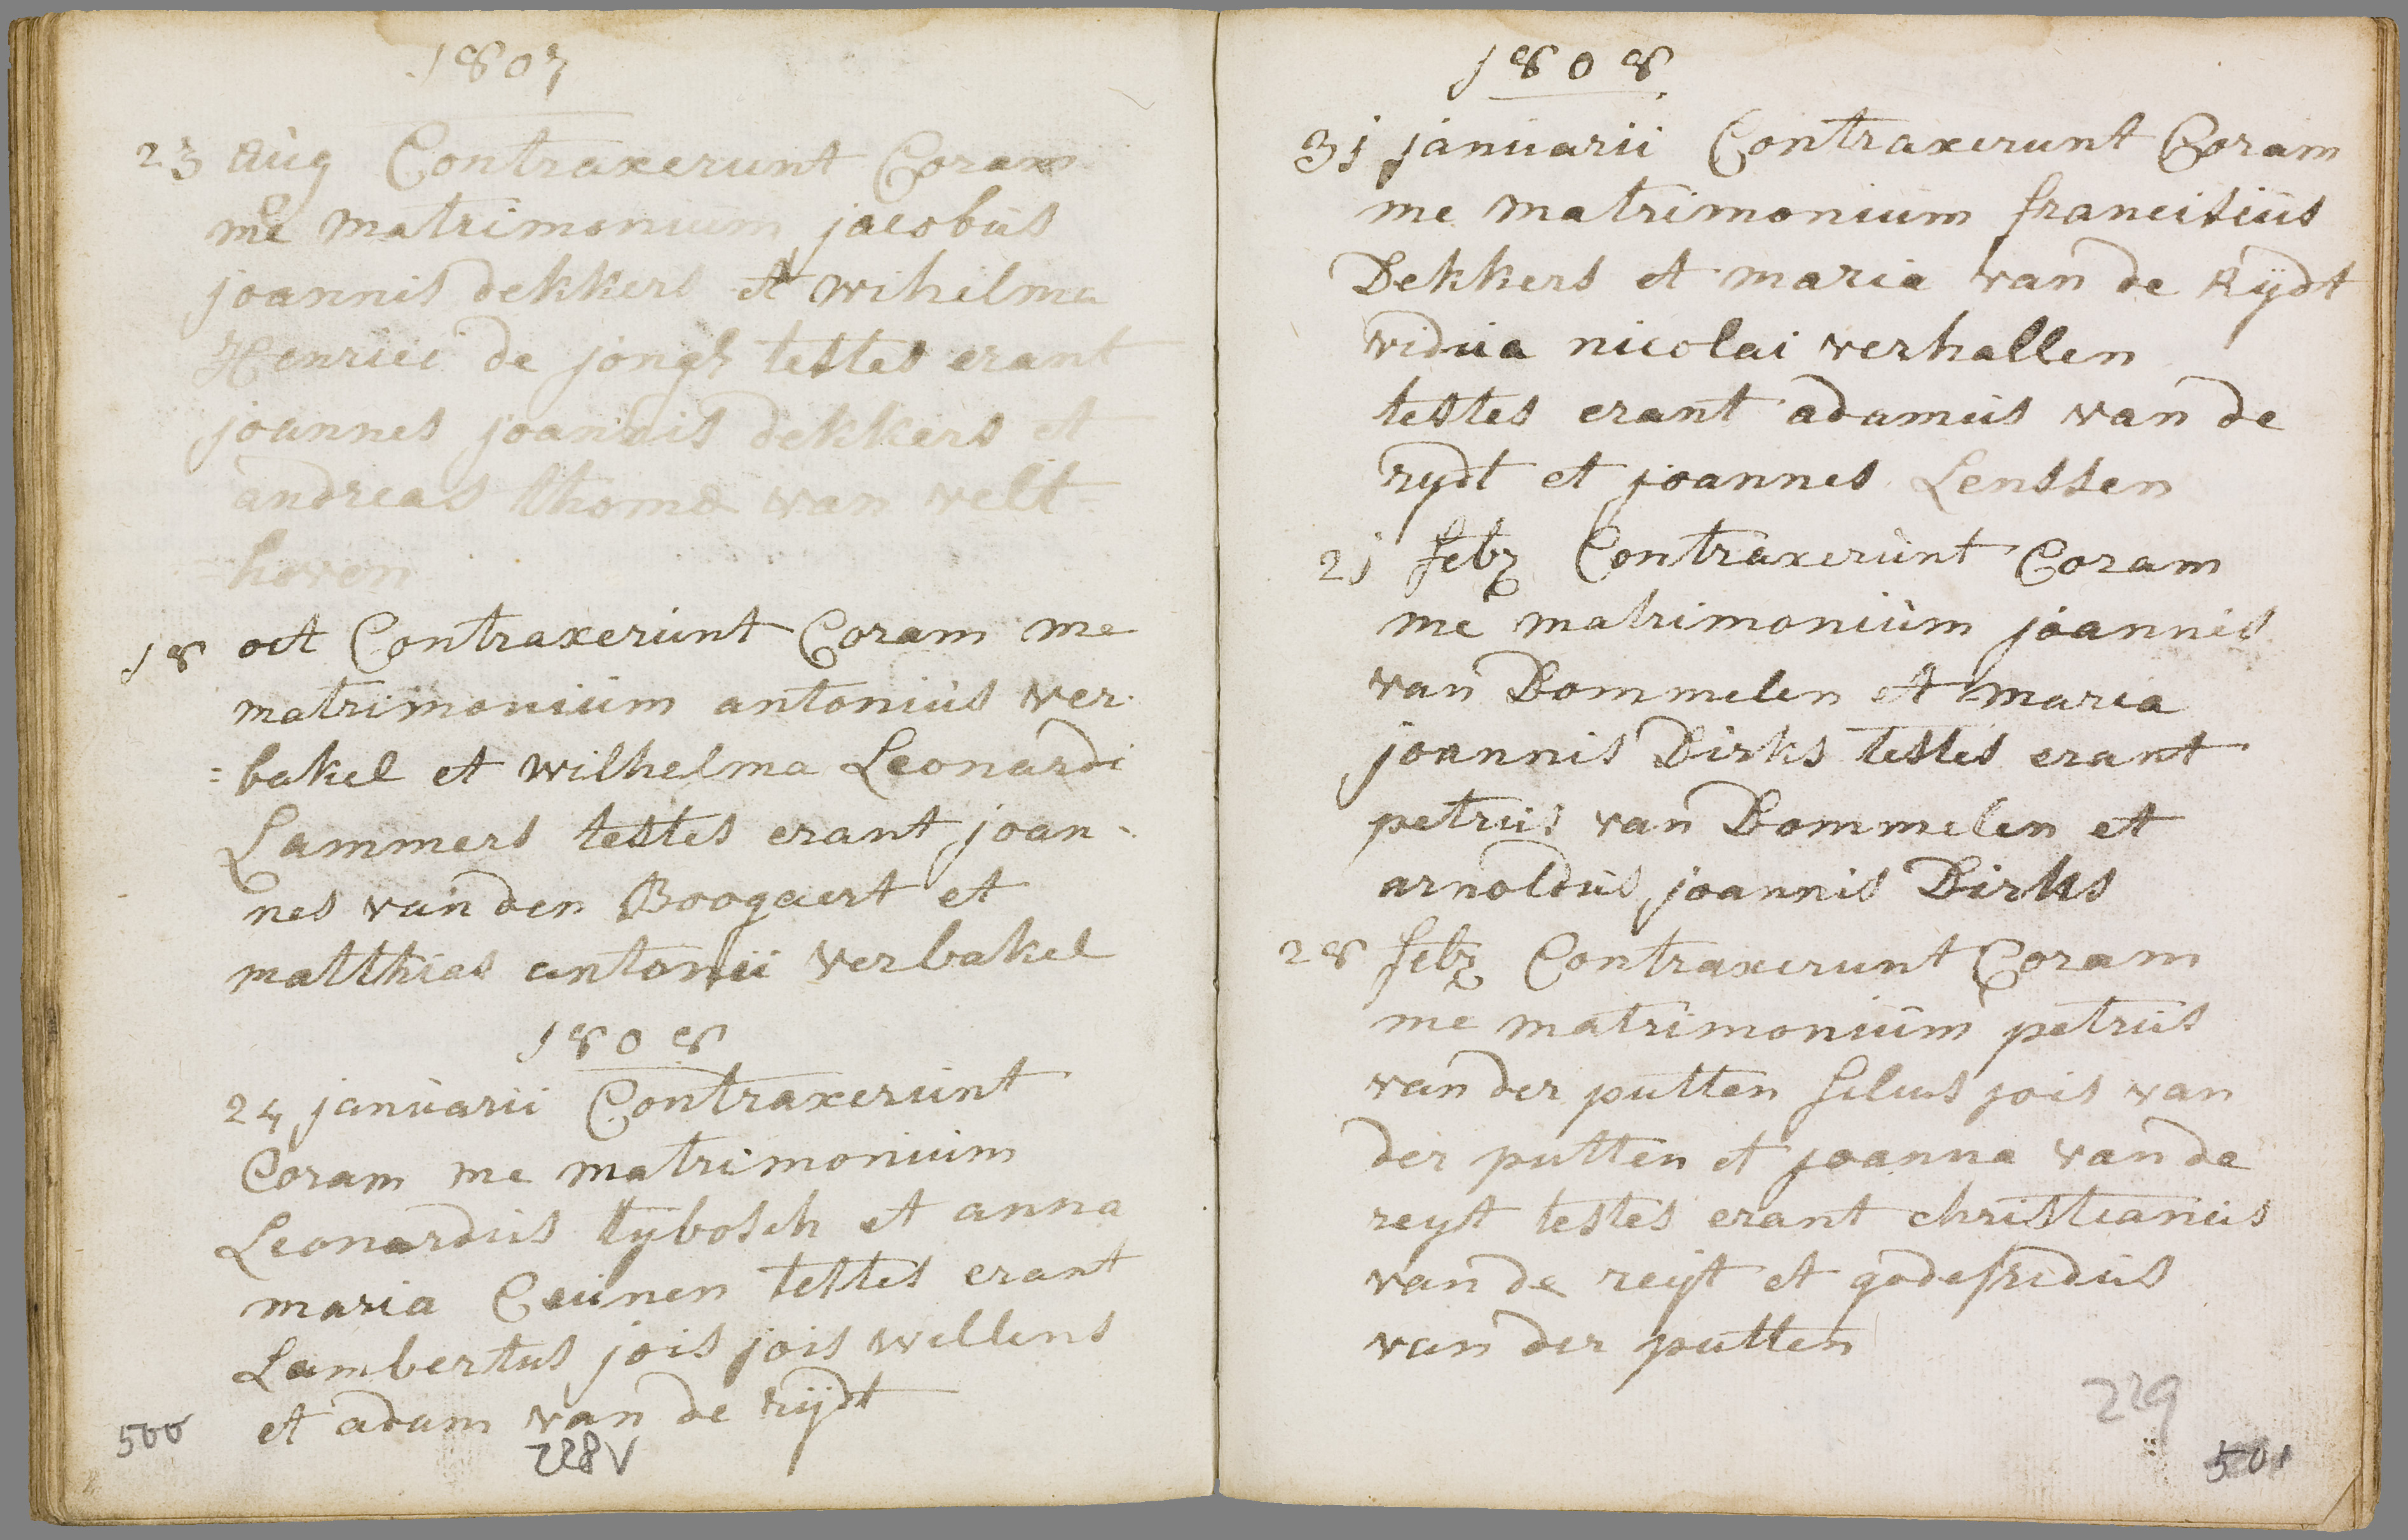 1807
23 aug Contraxerunt Coram
me matrimonium jacobus
joannis dekkers et wihelma
Henrici de jongh testes erant
joannes joannis dekkers et
andreas thomæ van velt
hoven
18 oct Contraxerunt Coram me
matrimonium antonius ver
=bakel et wilhelma Leonardi
Lammers testes erant joan-
nes van den Boogaert et
matthias antonii verbakel
1808
24 januarii Contraxerunt
Coram me matrimonium
Leonardus tybosch et anna
maria Ceunen testes erant
Lambertus jois jois willens
et adam van de rijdt
500
228v
1808
31 januarii Contraxerunt Coram
me matrimonium franciscus
Dekkers et maria van de Rijdt
vidua nicolai verhallen
testes erant adamus van de
rydt et joannes Lenssen
21 febr Contraxerunt Coram
me matrimonium joannes
van Dommelen et maria
joannis Dirks testes erant
petrus van Dommelen et
arnoldus joannis Dirks
28 febr Contraxerunt Coram
me matrimonium petrus
van der putten filius jois van
der putten et joanna van de
reyt testes erant christianus
van de reijt et godefridus
van der putten
229
501